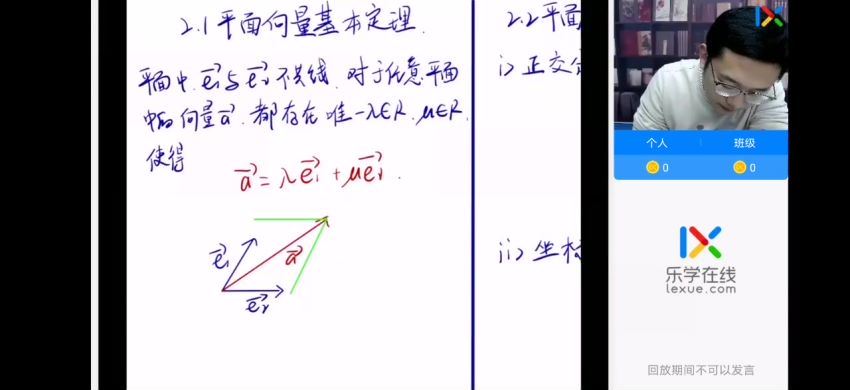 2.1 平面向量基本定理.
平面中, e₁与e₂不共线. 对于任意平面
中的向量a, 都存在唯一λ∈R, μ∈R,
使得
a = λe₁ + μe₂.
e₁
a
e₂
2.2 平面
i> 正交分
ii> 坐标
个人 班级
0 0
乐学在线
lexue.com
回放期间不可以发言